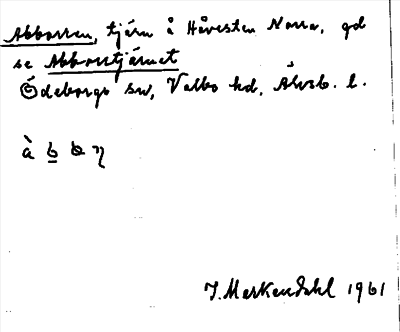 Abborren, tjärn å Håvesten Norra, gd
se Abborrtjärnet
Ödeborgs sn, Valbo hd, Älvsb. l.
J. Markendahl 1961